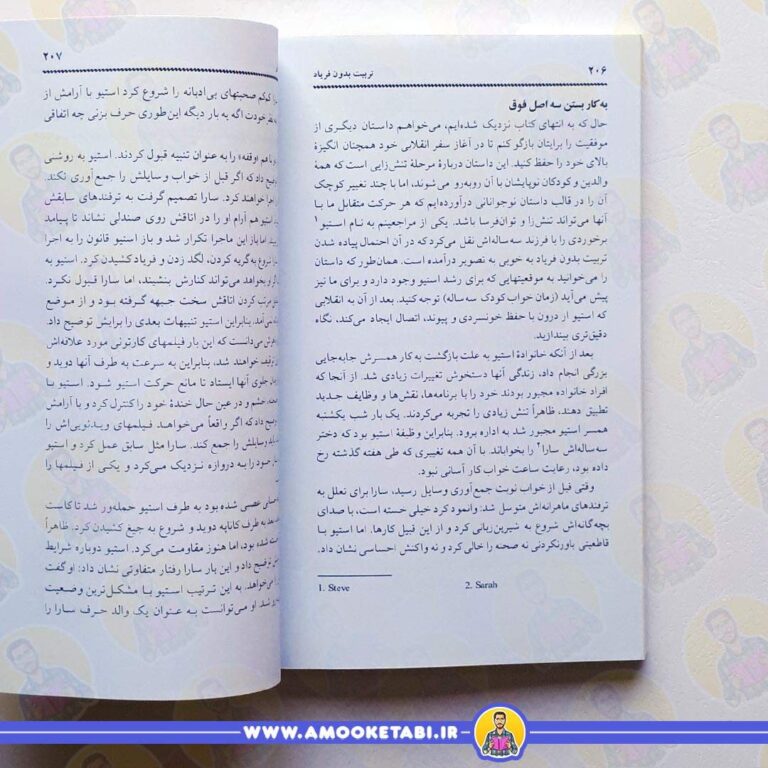 ۲۰۶
تربیت بدون فریاد
به کار بستن سه اصل فوق
حال که به انتهای کتاب نزدیک شده‌ایم، می‌خواهم داستان دیگری از
موفقیت را برایتان بازگو کنم تا در آغاز سفر انقلابی خود همچنان انگیزهٔ
بالای خود را حفظ کنید. این داستان دربارهٔ مرحلهٔ تنش‌زایی است که همهٔ
والدین و کودکان نوپایشان با آن روبه‌رو می‌شوند، اما با چند تغییر کوچک
آن را در قالب داستان نوجوانانی درآورده‌ایم که هر حرکت متقابل ما با
آنها می‌تواند تنش‌زا و توان‌فرسا باشد. یکی از مراجعینم به نام استیو۱
برخوردی را با فرزند سه‌ساله‌اش نقل می‌کرد که در آن احتمال پیاده شدن
تربیت بدون فریاد به خوبی به تصویر درآمده است. همان‌طور که داستان
را می‌خوانید به موقعیتهایی که برای رشد استیو وجود دارد و برای ما نیز
پیش می‌آید (زمان خواب کودک سه‌ساله) توجه کنید. بعد از آن به انقلابی
که استیو از درون با حفظ خونسردی و پیوند، اتصال ایجاد می‌کند، نگاه
دقیق‌تری بیندازید.
بعد از آنکه خانوادهٔ استیو به علت بازگشت به کار همسرش جابه‌جایی
بزرگی انجام داد، زندگی آنها دستخوش تغییرات زیادی شد. از آنجا که
افراد خانواده مجبور بودند خود را با برنامه‌ها، نقش‌ها و وظایف جدید
تطبیق دهند، ظاهراً تنش زیادی را تجربه می‌کردند. یک بار شب یکشنبه
همسر استیو مجبور شد به اداره برود. بنابراین وظیفهٔ استیو بود که دختر
سه‌ساله‌اش سارا۲ را بخواباند. با آن همه تغییری که طی هفته گذشته رخ
داده بود، رعایت ساعت خواب کار آسانی نبود.
وقتی قبل از خواب نوبت جمع‌آوری وسایل رسید، سارا برای تعلل به
ترفندهای ماهرانه‌اش متوسل شد: وانمود کرد خیلی خسته است، با صدای
بچه‌گانه‌اش شروع به شیرین‌زبانی کرد و از این قبیل کارها. اما استیو با
قاطعیتی باورنکردنی نه صحنه را خالی کرد و نه واکنش احساسی نشان داد.
1. Steve
2. Sarah
۲۰۷
کم‌کم صحبتهای بی‌ادبانه را شروع کرد استیو با آرامش از
خودت اگه یه بار دیگه این‌طوری حرف بزنی چه اتفاقی
هم «وقفه» را به عنوان تنبیه قبول کردند. استیو به روشی
داد که اگر قبل از خواب وسایلش را جمع‌آوری نکند،
اجرا خواهند کرد. سارا تصمیم گرفت به ترفندهای سابقش
استیو هم آرام او را در اتاقش روی صندلی نشاند تا پیامد
اما باز این ماجرا تکرار شد و باز استیو قانون را به اجرا
شروع به گریه کردن، لگد زدن و فریاد کشیدن کرد. استیو به
بخواهد می‌تواند کنارش بنشیند، اما سارا قبول نکرد.
مرتب کردن اتاقش سخت جبهه گرفته بود و از موضع
نمی‌آمد. بنابراین استیو تنبیهات بعدی را برایش توضیح داد.
می‌دانست که این بار فیلمهای کارتونی مورد علاقه‌اش
توقیف خواهند شد، بنابراین به سرعت به طرف آنها دوید و
جلوی آنها ایستاد تا مانع حرکت استیو شود. استیو با
خشم و در عین حال خندهٔ خود را کنترل کرد و با آرامش
داد که اگر واقعاً می‌خواهد فیلمهای ویدئویی‌اش را
باید وسایلش را جمع کند. سارا مثل سابق عمل کرد و استیو
خود را به دروازه نزدیک می‌کرد و یکی از فیلمها را
عصبی شده بود به طرف استیو حمله‌ور شد تا کاست
بعد به طرف کاناپه دوید و شروع به جیغ کشیدن کرد. ظاهراً
شده بود، اما هنوز مقاومت می‌کرد. استیو دوباره شرایط
توضیح داد و این بار سارا رفتار متفاوتی نشان داد: او گفت
می‌خواهد. به این ترتیب استیو با مشکل‌ترین وضعیت
شد. او می‌توانست به عنوان یک والد حرف سارا را
WWW.AMOOKETABI.IR